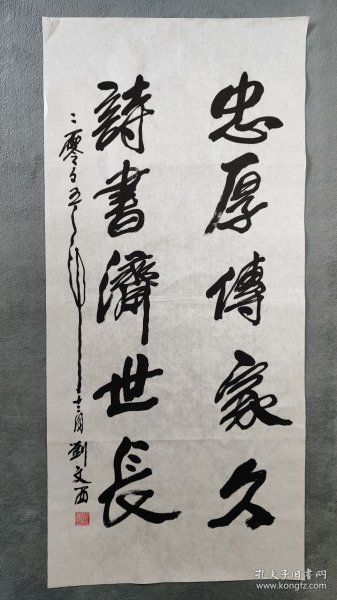 忠厚傳家久
詩書濟世長
二零零五年十二月 劉文西
孔夫子旧书网
www.kongfz.com